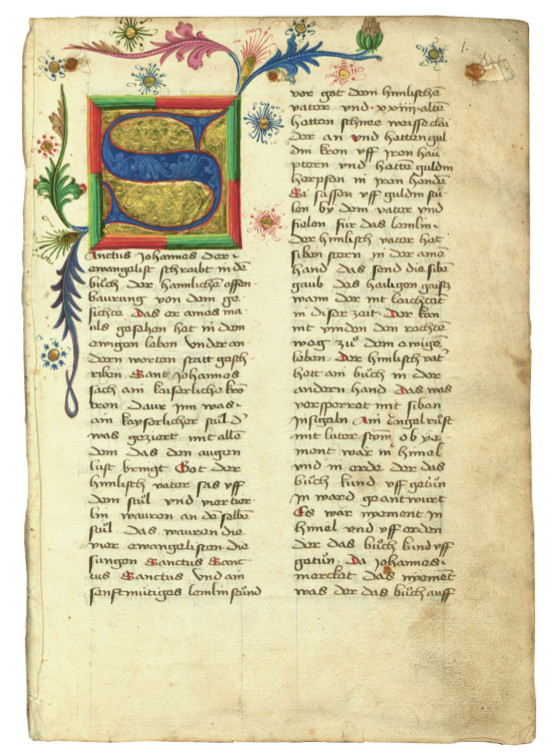 1.
Sanctus Johannes der
ewangelist schraibt in dē
bůch der haimlichē offen
baurung von dem ge
sichte Das er ains ma
uls gesehen hat in dem
ewigen leben Vnder an
dern worten statt gesch
riben Sant Johannes
sach ain kaiserliche kro
tron daur Inn was
ain kayserlicher stůl d'
was geziert mit alle
dem das den augen
lust bringt Got der
himlisch vater sas vff
dem stůl vnd vier tier
lin wauren an dē selbē
stůl das wauren die
vier ewangelisten die
sungen Sanctus Sanc
tus Sanctus Vnd ain
senftmůtiges lemlin stůnd
vor got dem himlischē
vater vnd xxiiii altē
hatten schnee weisse clai
der an vnd hetten gul
din kron vff Iren hau
ptern vnd hattē guldin
herpfen in Iren hendē
Si sůssen vff guldin stů
len by dem vater vnd
fielen für das lemlin
der himlisch vater het
siben stern in der ainē
hand das send die sibē
gaub des hailigen gaistz
wann der nit laichtet
in diser zeit Der kan
nit vinden den rechten
weg zů dem ewigē
leben Der himlisch vat'
hett ain bůch in der
andern hand Das was
versperret mit siben
Insigeln Ain Engel růft
mit luter stym ob ye
ment wär in himel
vnd in erde der das
bůch kund vff getůn
In ward geantwurt
Es wär nyement in
himel vnd vff erden
der das bůch kund vff
getůn Da Johannes
mercket das nyemēt
was der das bůch auff